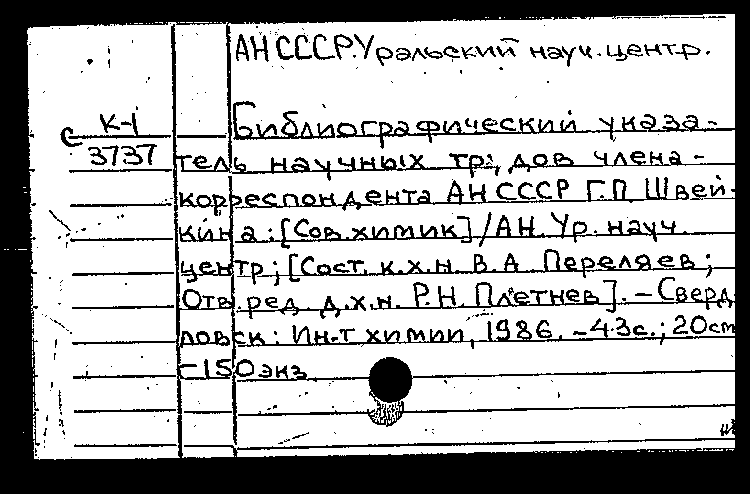 АН СССР. Уральский науч. центр.
К-1
С
3737
Библиографический указа-
тель научных трудов члена-
корреспондента АН СССР Г.П. Швей-
кина: [Сов. химик] / АН. Ур. науч.
центр; [Сост. к.х.н. В.А Переляев;
Отв. ред. д.х.н. Р.Н. Плетнев]. – Сверд
ловск: Ин-т химии, 1986. – 43с.; 20см
– 150 экз